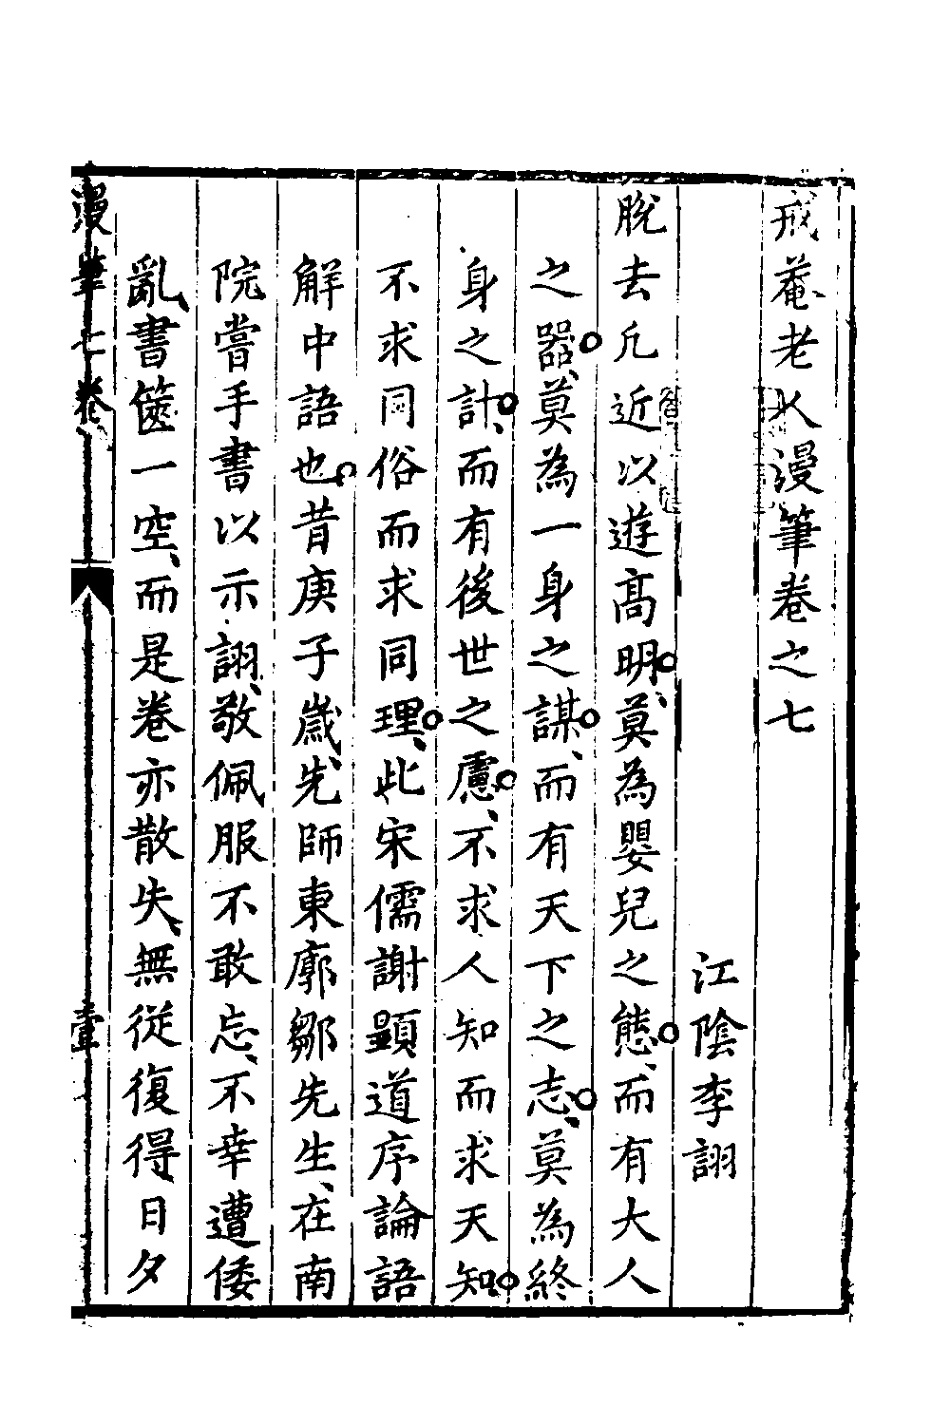 戒菴老人漫筆卷之七
江陰李詡
脫去凡近以遊高明、莫為嬰兒之態、而有大人
之器、莫為一身之謀、而有天下之志、莫為終
身之計、而有後世之慮、不求人知而求天知
不求同俗而求同理、此宋儒謝顯道序論語
解中語也昔庚子歲、先師東廓鄒先生、在南
院嘗手書以示詡、敬佩服不敢忘、不幸遭倭
亂、書篋一空、而是卷亦散失、無從復得、日夕
漫筆七卷
壹